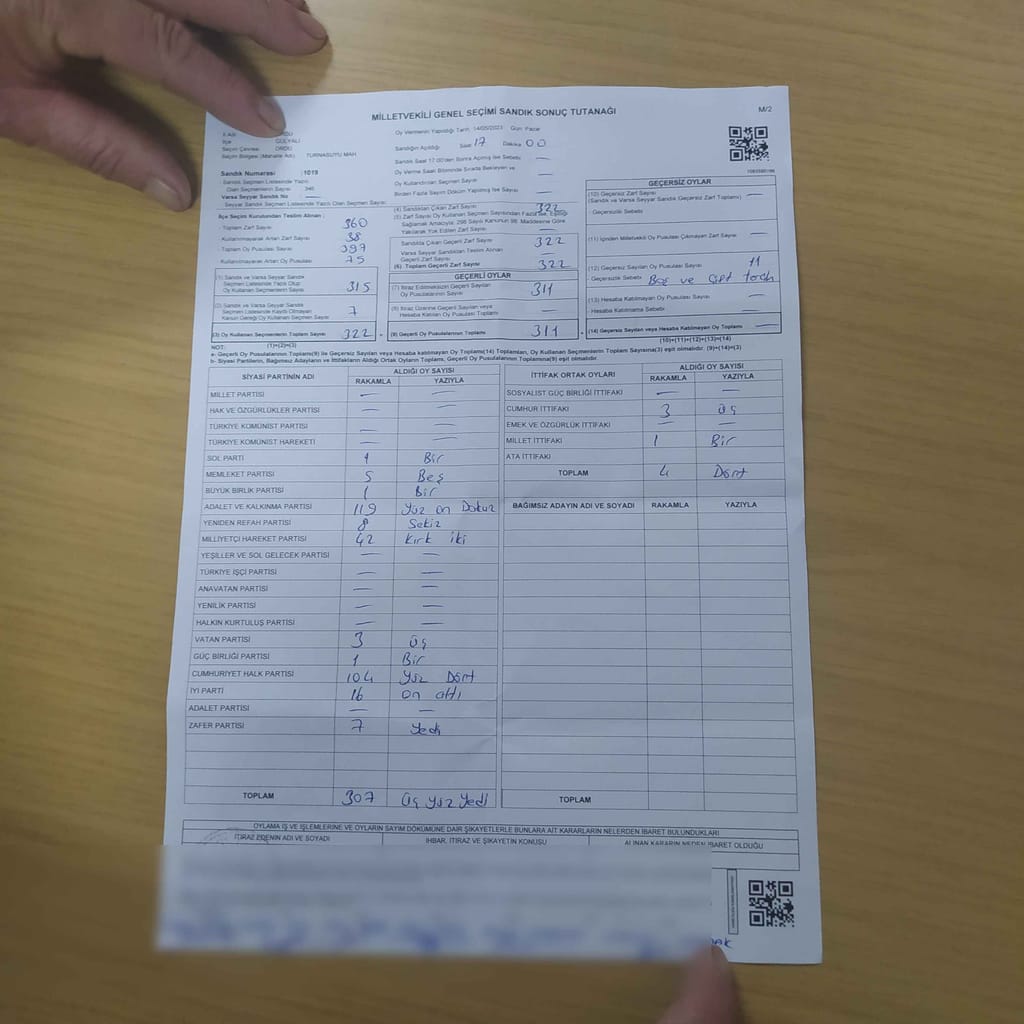 MİLLETVEKİLİ GENEL SEÇİMİ SANDIK SONUÇ TUTANAĞI
M/2
İlçe GÜLYALI
Seçim Çevresi ORDU
Seçim Bölgesi (Mahalle Adı) TURNASUYU MAH
Oy Vermenin Yapıldığı Tarih 14/05/2023 Gün Pazar
Sandığın Açıldığı Saat 17 Dakika 00
Sandık Saat 17:00'den Sonra Açılmış İse Sebebi —
Oy Verme Saat Bitiminde Sırada Bekleyen ve
Oy Kullandırılan Seçmen Sayısı —
Birden Fazla Sayım Döküm Yapılmış İse Sayısı —
Sandık Numarası : 1019
Sandık Seçmen Listesinde Yazılı
Olan Seçmenlerin Sayısı 346
Varsa Seyyar Sandık No —
Seyyar Sandık Seçmen Listesinde Yazılı Olan Seçmen Sayısı
İlçe Seçim Kurulundan Teslim Alınan ;
- Toplam Zarf Sayısı 360
- Kullanılmayarak Artan Zarf Sayısı 38
- Toplam Oy Pusulası Sayısı 397
- Kullanılmayarak Artan Oy Pusulası Sayısı 75
(1) Sandık ve Varsa Seyyar Sandık
Seçmen Listesinde Yazılı Olup
Oy Kullanan Seçmenlerin Sayısı 315
(2) Sandık ve Varsa Seyyar Sandık
Seçmen Listesinde Kayıtlı Olmayan
Kanun Gereği Oy Kullanan Seçmen Sayısı 7
(3) Oy Kullanan Seçmenlerin Toplam Sayısı 322
(1)+(2)=(3)
(4) Sandıktan Çıkan Zarf Sayısı 322
(5) Zarf Sayısı Oy Kullanan Seçmen Sayısından Fazla İse, Eşitliği
Sağlamak Amacıyla; 298 Sayılı Kanunun 98. Maddesine Göre
Yakılarak Yok Edilen Zarf Sayısı —
Sandıkta Çıkan Geçerli Zarf Sayısı 322
Varsa Seyyar Sandıktan Teslim Alınan
Geçerli Zarf Sayısı —
(6) Toplam Geçerli Zarf Sayısı 322
GEÇERLİ OYLAR
(7) İtiraz Edilmeksizin Geçerli Sayılan
Oy Pusulalarının Sayısı 311
(8) İtiraz Üzerine Geçerli Sayılan veya
Hesaba Katılan Oy Pusulası Toplamı —
(9) Geçerli Oy Pusulalarının Toplamı 311
GEÇERSİZ OYLAR
(10) Geçersiz Zarf Sayısı
(Sandık ve Varsa Seyyar Sandık Geçersiz Zarf Toplamı) —
- Geçersizlik Sebebi
(11) İçinden Milletvekili Oy Pusulası Çıkmayan Zarf Sayısı —
(12) Geçersiz Sayılan Oy Pusulası Sayısı 11
- Geçersizlik Sebebi Boş ve Çift tercih
(13) Hesaba Katılmayan Oy Pusulası Sayısı —
- Hesaba Katılmama Sebebi
(14) Geçersiz Sayılan veya Hesaba Katılmayan Oy Toplamı —
(10)+(11)+(12)+(13)=(14)
NOT:
a- Geçerli Oy Pusulalarının Toplamı(9) ile Geçersiz Sayılan veya Hesaba katılmayan Oy Toplamı(14) Toplamları, Oy Kullanan Seçmenlerin Toplam Sayısına(3) eşit olmalıdır. (9)+(14)=(3)
b- Siyasi Partilerin, Bağımsız Adayların ve İttifakların Aldığı Ortak Oyların Toplamı, Geçerli Oy Pusulalarının Toplamına(9) eşit olmalıdır.
SİYASİ PARTİNİN ADI ALDIĞI OY SAYISI
RAKAMLA YAZIYLA
MİLLET PARTİSİ — —
HAK VE ÖZGÜRLÜKLER PARTİSİ — —
TÜRKİYE KOMÜNİST PARTİSİ — —
TÜRKİYE KOMÜNİST HAREKETİ — —
SOL PARTİ 1 Bir
MEMLEKET PARTİSİ 5 Beş
BÜYÜK BİRLİK PARTİSİ 1 Bir
ADALET VE KALKINMA PARTİSİ 119 Yüz on Dokuz
YENİDEN REFAH PARTİSİ 8 Sekiz
MİLLİYETÇİ HAREKET PARTİSİ 42 Kırk iki
YEŞİLLER VE SOL GELECEK PARTİSİ — —
TÜRKİYE İŞÇİ PARTİSİ — —
ANAVATAN PARTİSİ — —
YENİLİK PARTİSİ — —
HALKIN KURTULUŞ PARTİSİ — —
VATAN PARTİSİ 3 Üç
GÜÇ BİRLİĞİ PARTİSİ 1 Bir
CUMHURİYET HALK PARTİSİ 104 Yüz Dört
İYİ PARTİ 16 on altı
ADALET PARTİSİ — —
ZAFER PARTİSİ 7 Yedi
TOPLAM 307 Üç Yüz Yedi
İTTİFAK ORTAK OYLARI ALDIĞI OY SAYISI
RAKAMLA YAZIYLA
SOSYALIST GÜÇ BİRLİĞİ İTTİFAKI — —
CUMHUR İTTİFAKI 3 Üç
EMEK VE ÖZGÜRLÜK İTTİFAKI — —
MİLLET İTTİFAKI 1 Bir
ATA İTTİFAKI
TOPLAM 4 Dört
BAĞIMSIZ ADAYIN ADI VE SOYADI RAKAMLA YAZIYLA
TOPLAM
OYLAMA İŞ VE İŞLEMLERİNE VE OYLARIN SAYIM DÖKÜMÜNE DAİR ŞİKAYETLERLE BUNLARA AİT KARARLARIN NELERDEN İBARET BULUNDUKLARI
İTİRAZ EDENİN ADI VE SOYADI İHBAR, İTİRAZ VE ŞİKAYETİN KONUSU ALINAN KARARIN NEDEN İBARET OLDUĞU